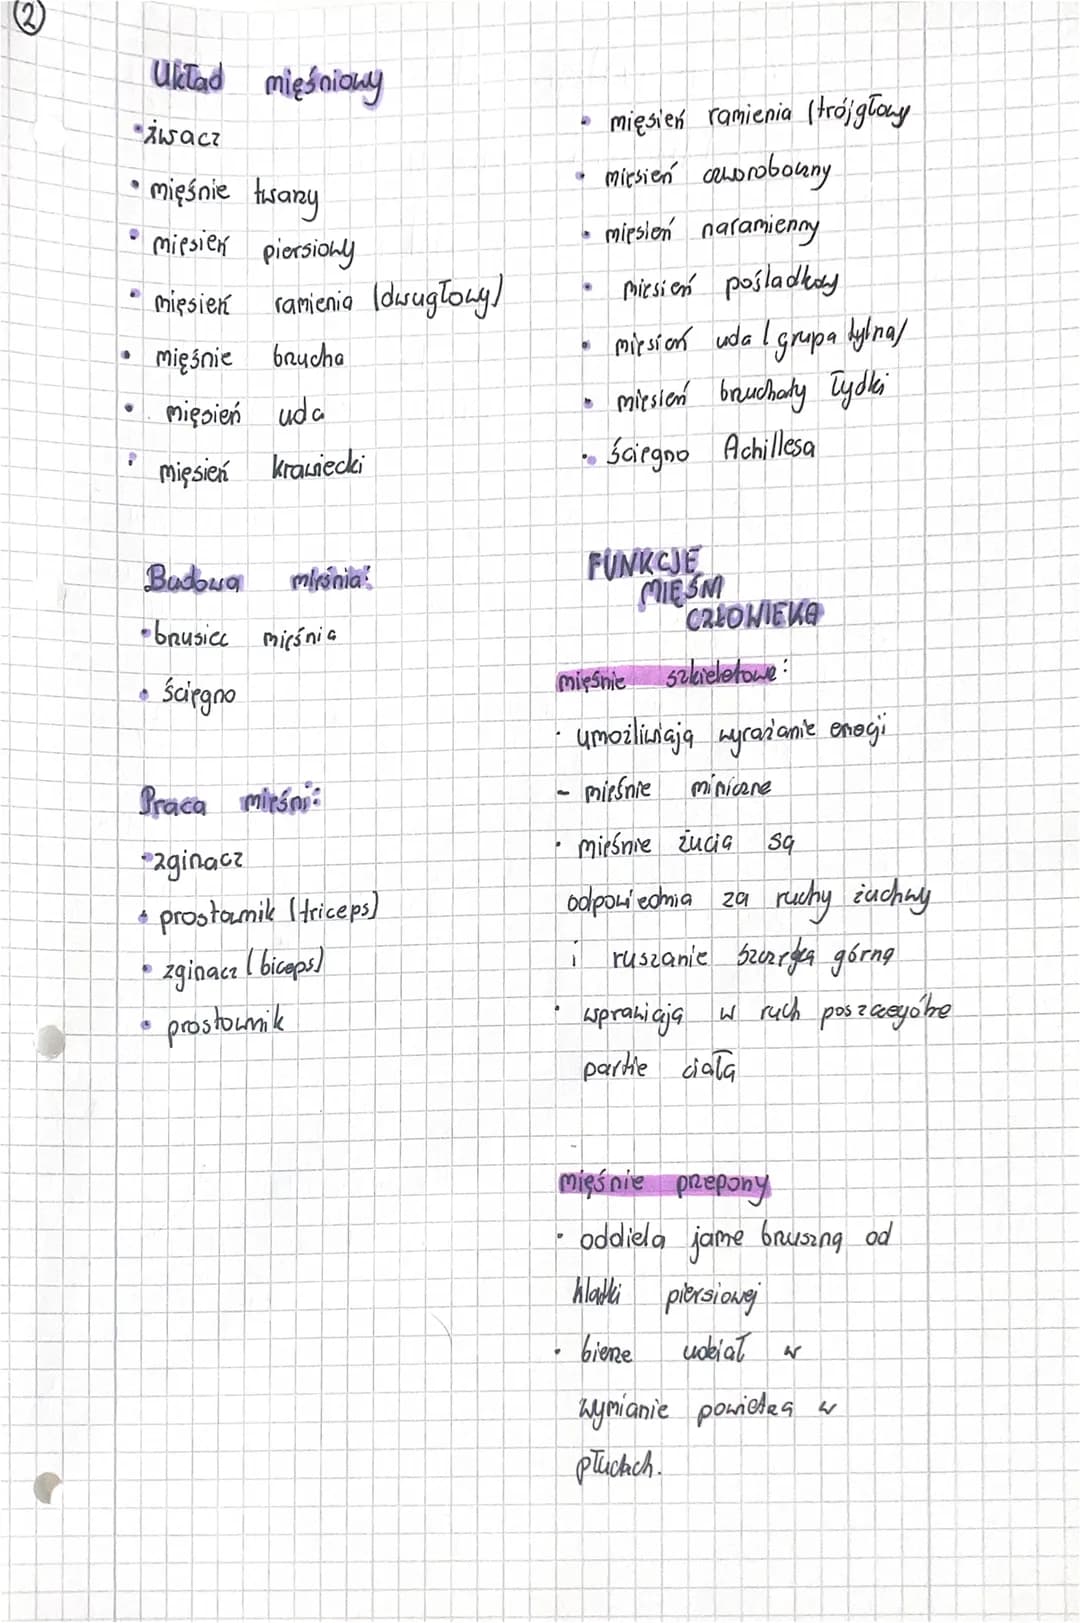 2
Układ mięśniowy
•żwacz
• mięśnie twarzy
• mięsień piersiowy
• mięsień ramienia (dwugłowy)
• mięśnie brzucha
• mięsień uda
• mięsień krawiecki
Budowa mięśnia:
•brzusiec mięśnia
• ścięgno
Praca mięśni:
•zginacz
• prostownik (triceps)
• zginacz (biceps)
• prostownik
• mięsień ramienia (trójgłowy
• mięsień czworoboczny
• mięsień naramienny
• mięsień pośladkowy
• mięsień uda (grupa tylna)
• mięsień brzuchaty łydki
• ścięgno Achillesa
FUNKCJE
MIĘŚNI
CZŁOWIEKA
mięśnie szkieletowe:
• umożliwiają wyrażanie emocji
- mięśnie mimiczne
• mięśnie żucia są
odpowiednia za ruchy żuchwy
i ruszanie szczęką górną
• wprawiają w ruch poszczególne
partie ciała
mięśnie przepony
• oddziela jamę brzuszną od
klatki piersiowej
• bierze udział w
wymianie powietrza w
płucach.